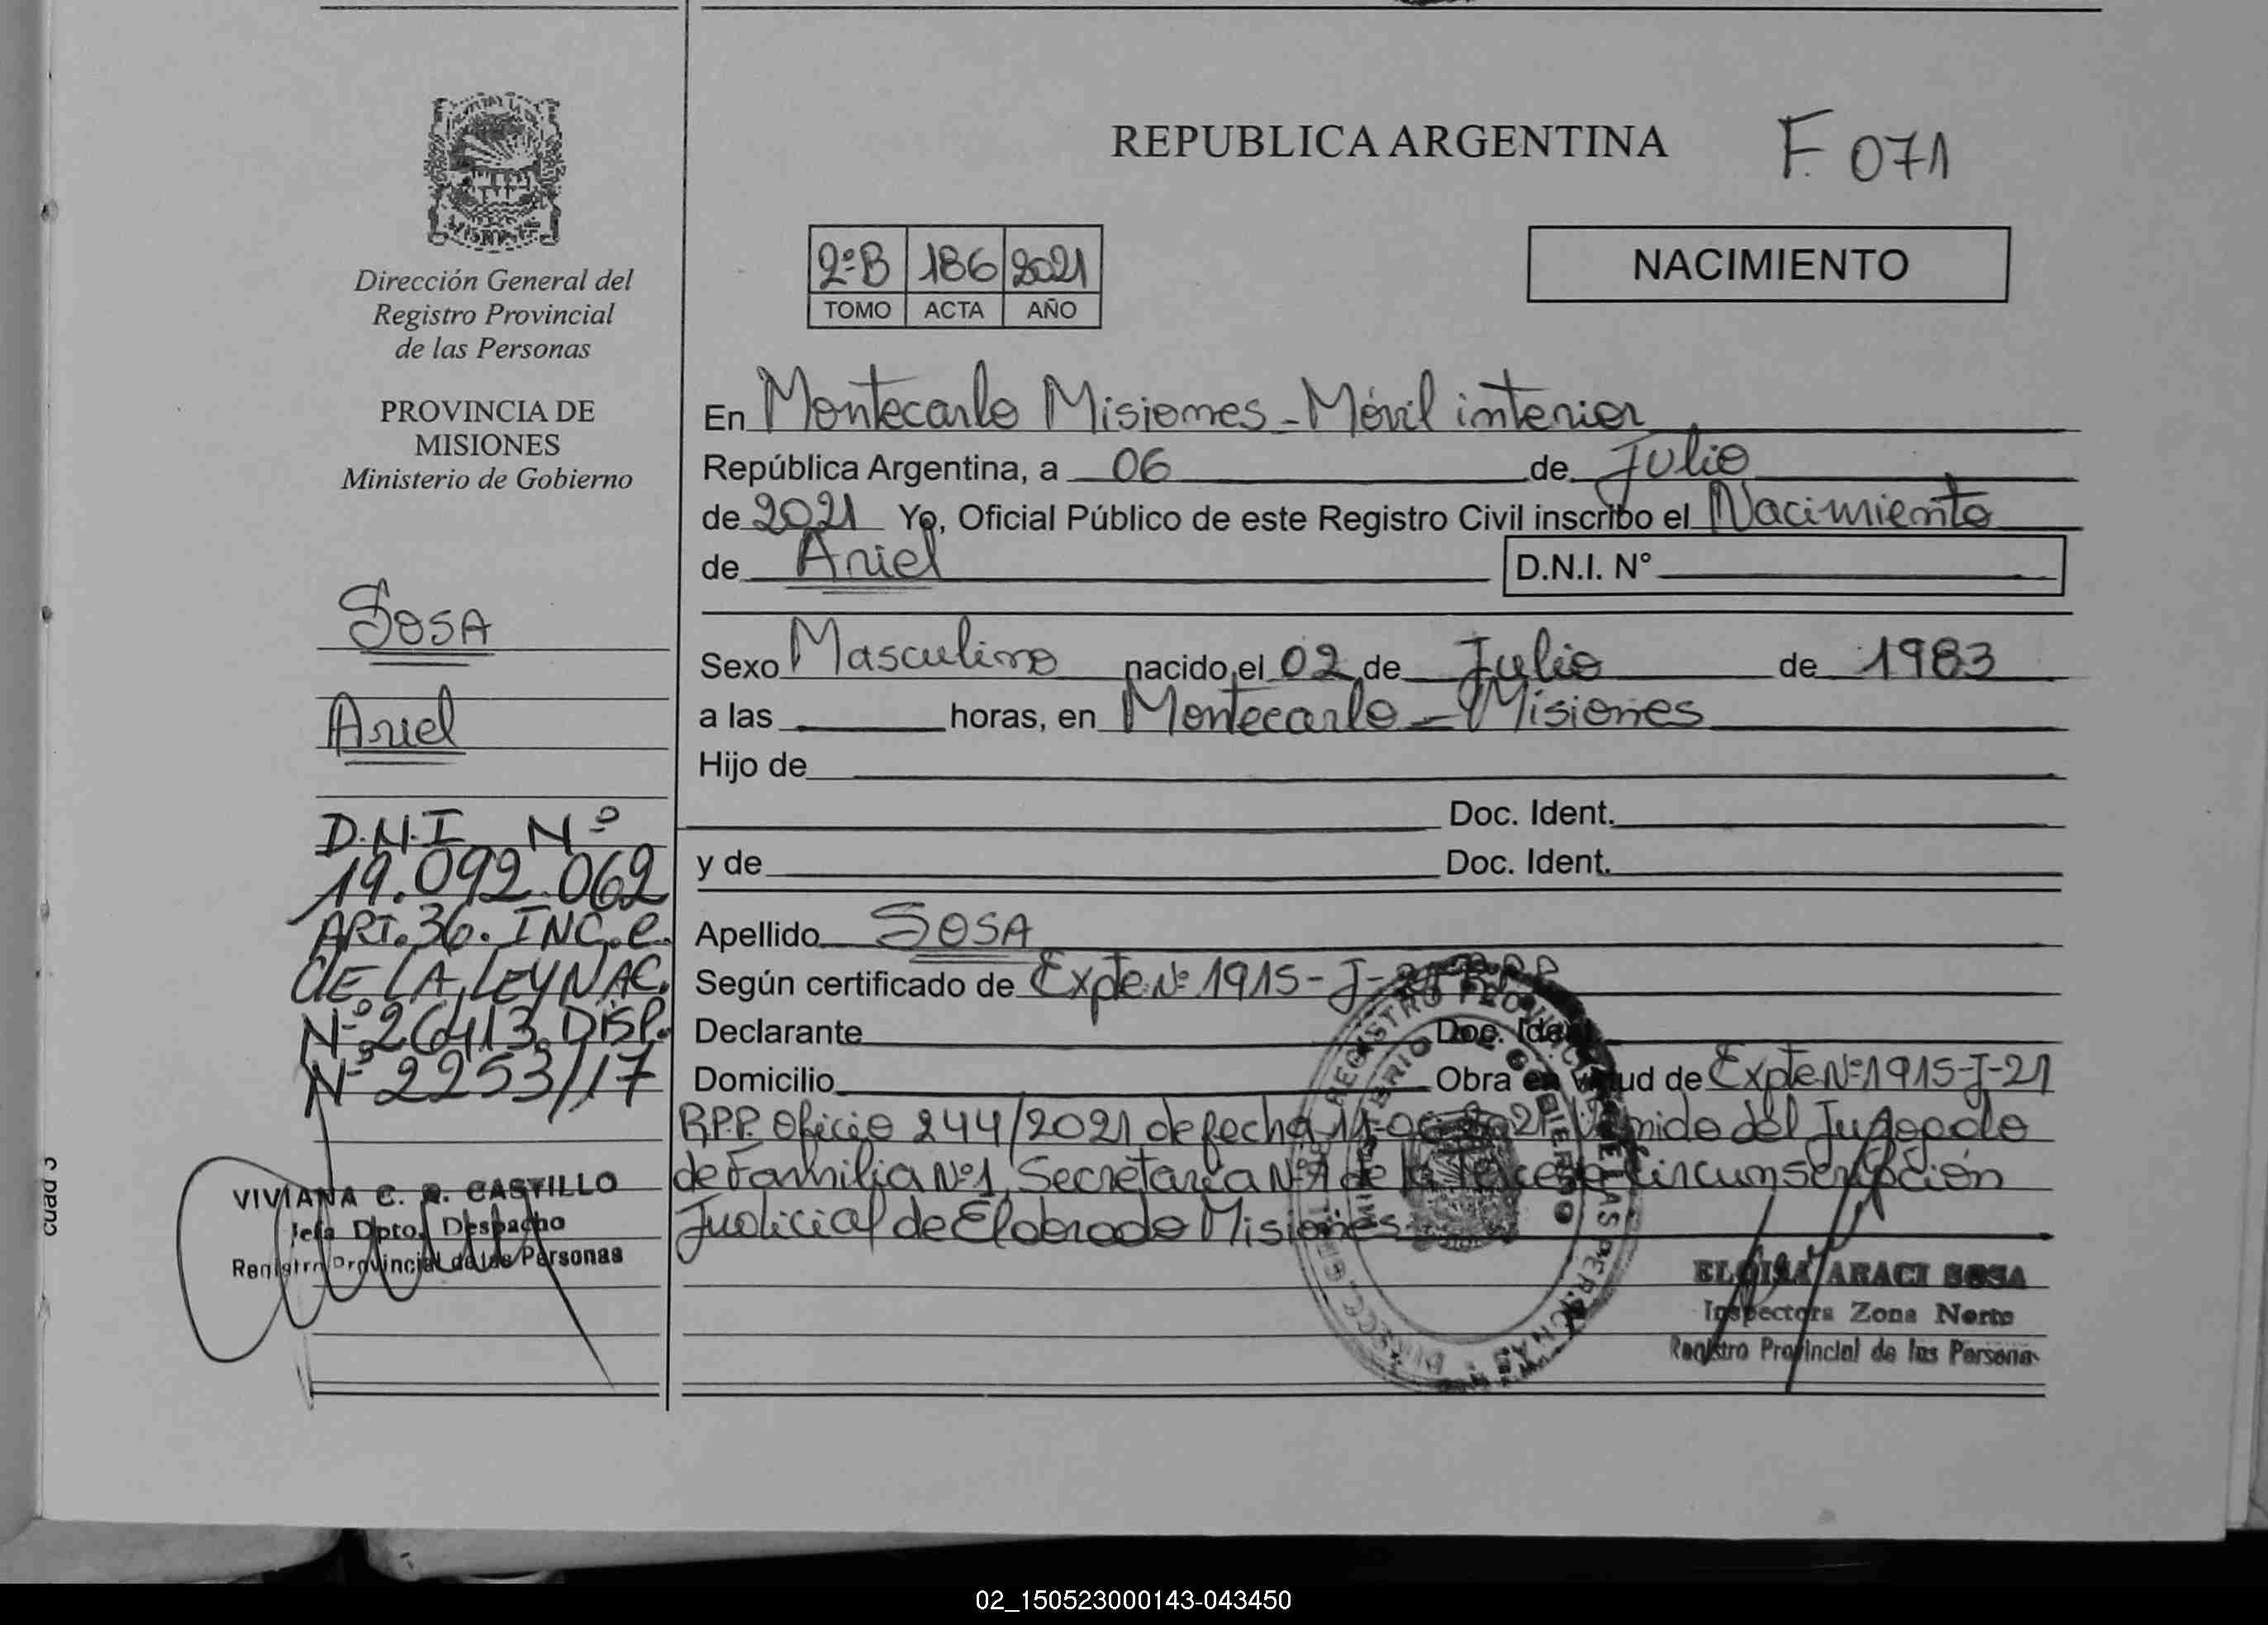 REPUBLICA ARGENTINA
F. 071
Dirección General del
Registro Provincial
de las Personas
PROVINCIA DE
MISIONES
Ministerio de Gobierno
2º B 186 2021
TOMO ACTA AÑO
NACIMIENTO
En Montecarlo Misiones - Móvil interior
República Argentina, a 06 de Julio
de 2021 Yo, Oficial Público de este Registro Civil inscribo el Nacimiento
de Ariel D.N.I. Nº
Sexo Masculino nacido el 02 de Julio de 1983
a las horas, en Montecarlo - Misiones
Hijo de
Doc. Ident.
y de Doc. Ident.
Apellido SOSA
Según certificado de Expte Nº 1915-J-21 R.P.P
Declarante Doc. Ident.
Domicilio Obra en virtud de Expte Nº 1915-J-21
R.P.P. Oficio 244/2021 de fecha 2021 del Jugado
de Familia Nº1, Secretaria Nº1 de la Tercera Circunscripción
Judicial de Eldorado Misiones
SOSA
Ariel
D.N.I Nº
19.092.062
ART. 36. INC. e.
DE LA LEY NAC.
Nº 26413. DISP.
Nº 2253/17
VIVIANA C. R. CASTILLO
Jefa Dpto. Despacho
Registro Provincial de las Personas
ELOISA ARACI SOSA
Inspectora Zona Norte
Registro Provincial de las Personas
cuad 3
02_150523000143-043450